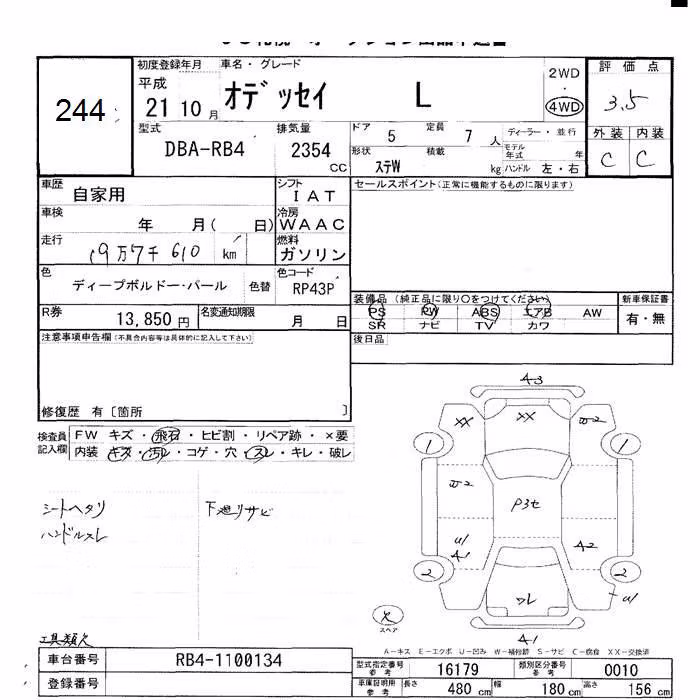 244
初度登録年月
平成
21 10 月
車名・グレード
オデッセイ L
2WD
4WD
評価点
3.5
外装 内装
C C
型式
DBA-RB4
排気量
2354
CC
ドア 5 定員 7 人
形状 ステW 積載 kg
ディーラー・並行
モデル年式 年
ハンドル 左・右
車歴
自家用
シフト
IAT
車検
年 月( 日)
冷房
WAAC
走行
19万7千610 km
燃料
ガソリン
色
ディープボルドー・パール 色替
色コード
RP43P
R券
13,850円
名変通知期限
月 日
セールスポイント(正常に機能するものに限ります)
装備品 (純正品に限り○をつけてください)
PS PW ABS エアB AW
SR ナビ TV カワ
新車保証書
有・無
後日品
注意事項申告欄(不具合内容等は具体的に記入して下さい)
修復歴 有〔箇所 〕
検査員記入欄
FW キズ・飛石・ヒビ割・リペア跡・×要
内装 キズ・汚レ・コゲ・穴・スレ・キレ・破レ
シートヘタリ
ハンドルスレ
下廻リサビ
工具類欠
A3
XX
XX
1
1
P3セ
U/
A1
A2
2
2
U/
A1
欠
スペア
A-キス E-エクボ U-凹み W-補修跡 S-サビ C-腐食 XX-交換済
車台番号
RB4-1100134
登録番号
型式指定番号 参考
16179
類別区分番号 参考
0010
車庫証明用 参考
長さ 480 cm 幅 180 cm 高さ 156 cm